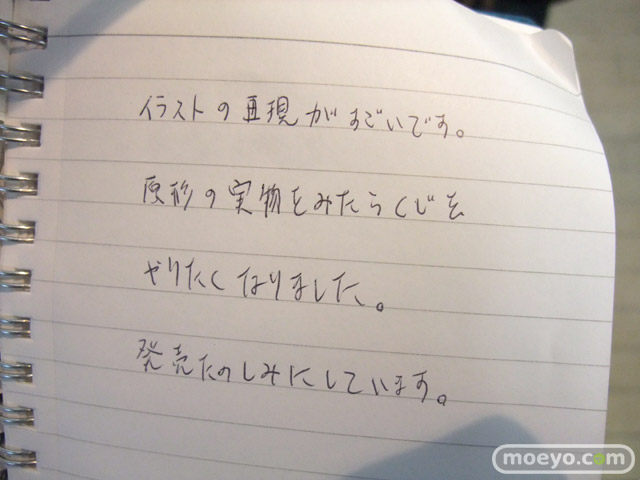 イラストの再現がすごいです。
原形の実物をみたらくじを
やりたくなりました。
発売たのしみにしています。
moeyo.com